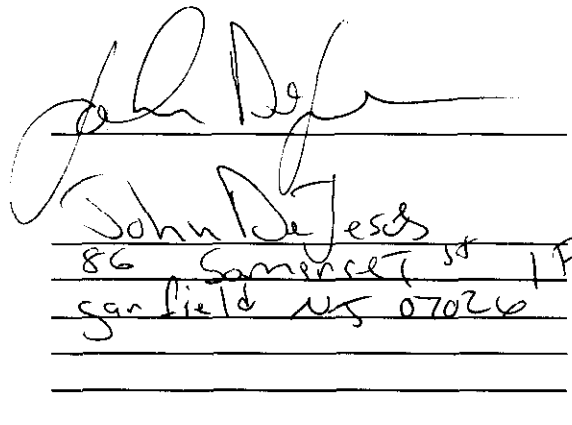 John DeJ
John DeJesus
86 Somerset St 1F
garfield NJ 07026